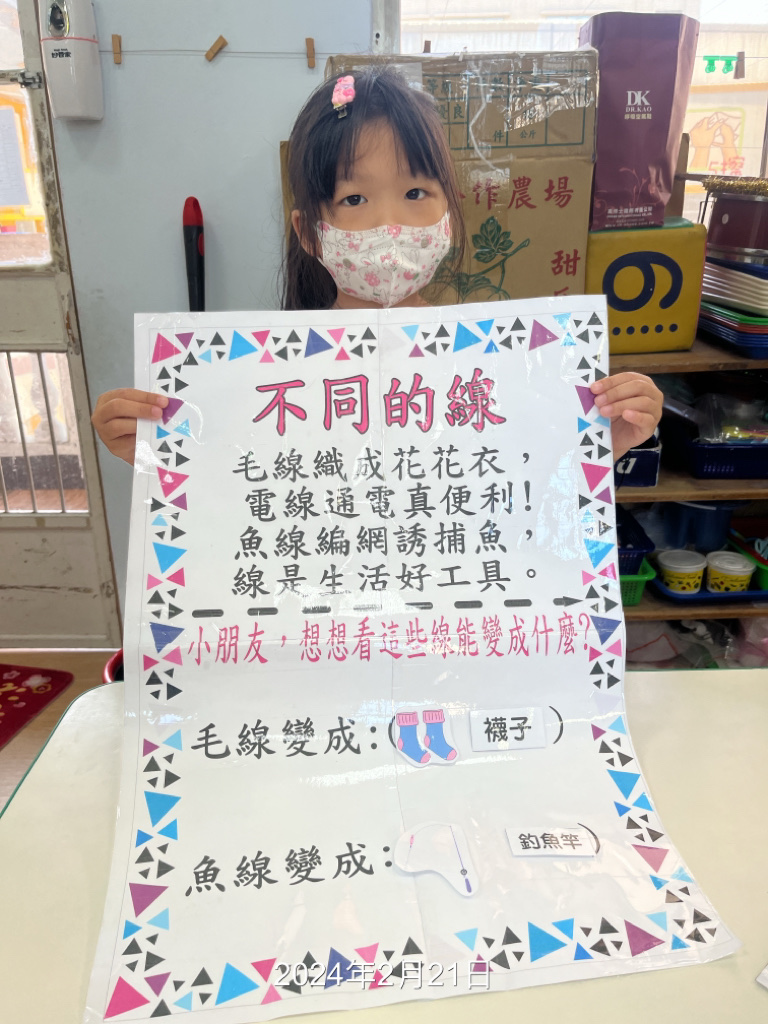 好帮家
優良
件
公斤
合作農場
甜
DK
DR.KAO
6
不同的線
毛線織成花花衣，
電線通電真便利!
魚線編網誘捕魚，
線是生活好工具。
小朋友，想想看這些線能變成什麼?
毛線變成:( 襪子 )
魚線變成: 釣魚竿)
2024年2月21日